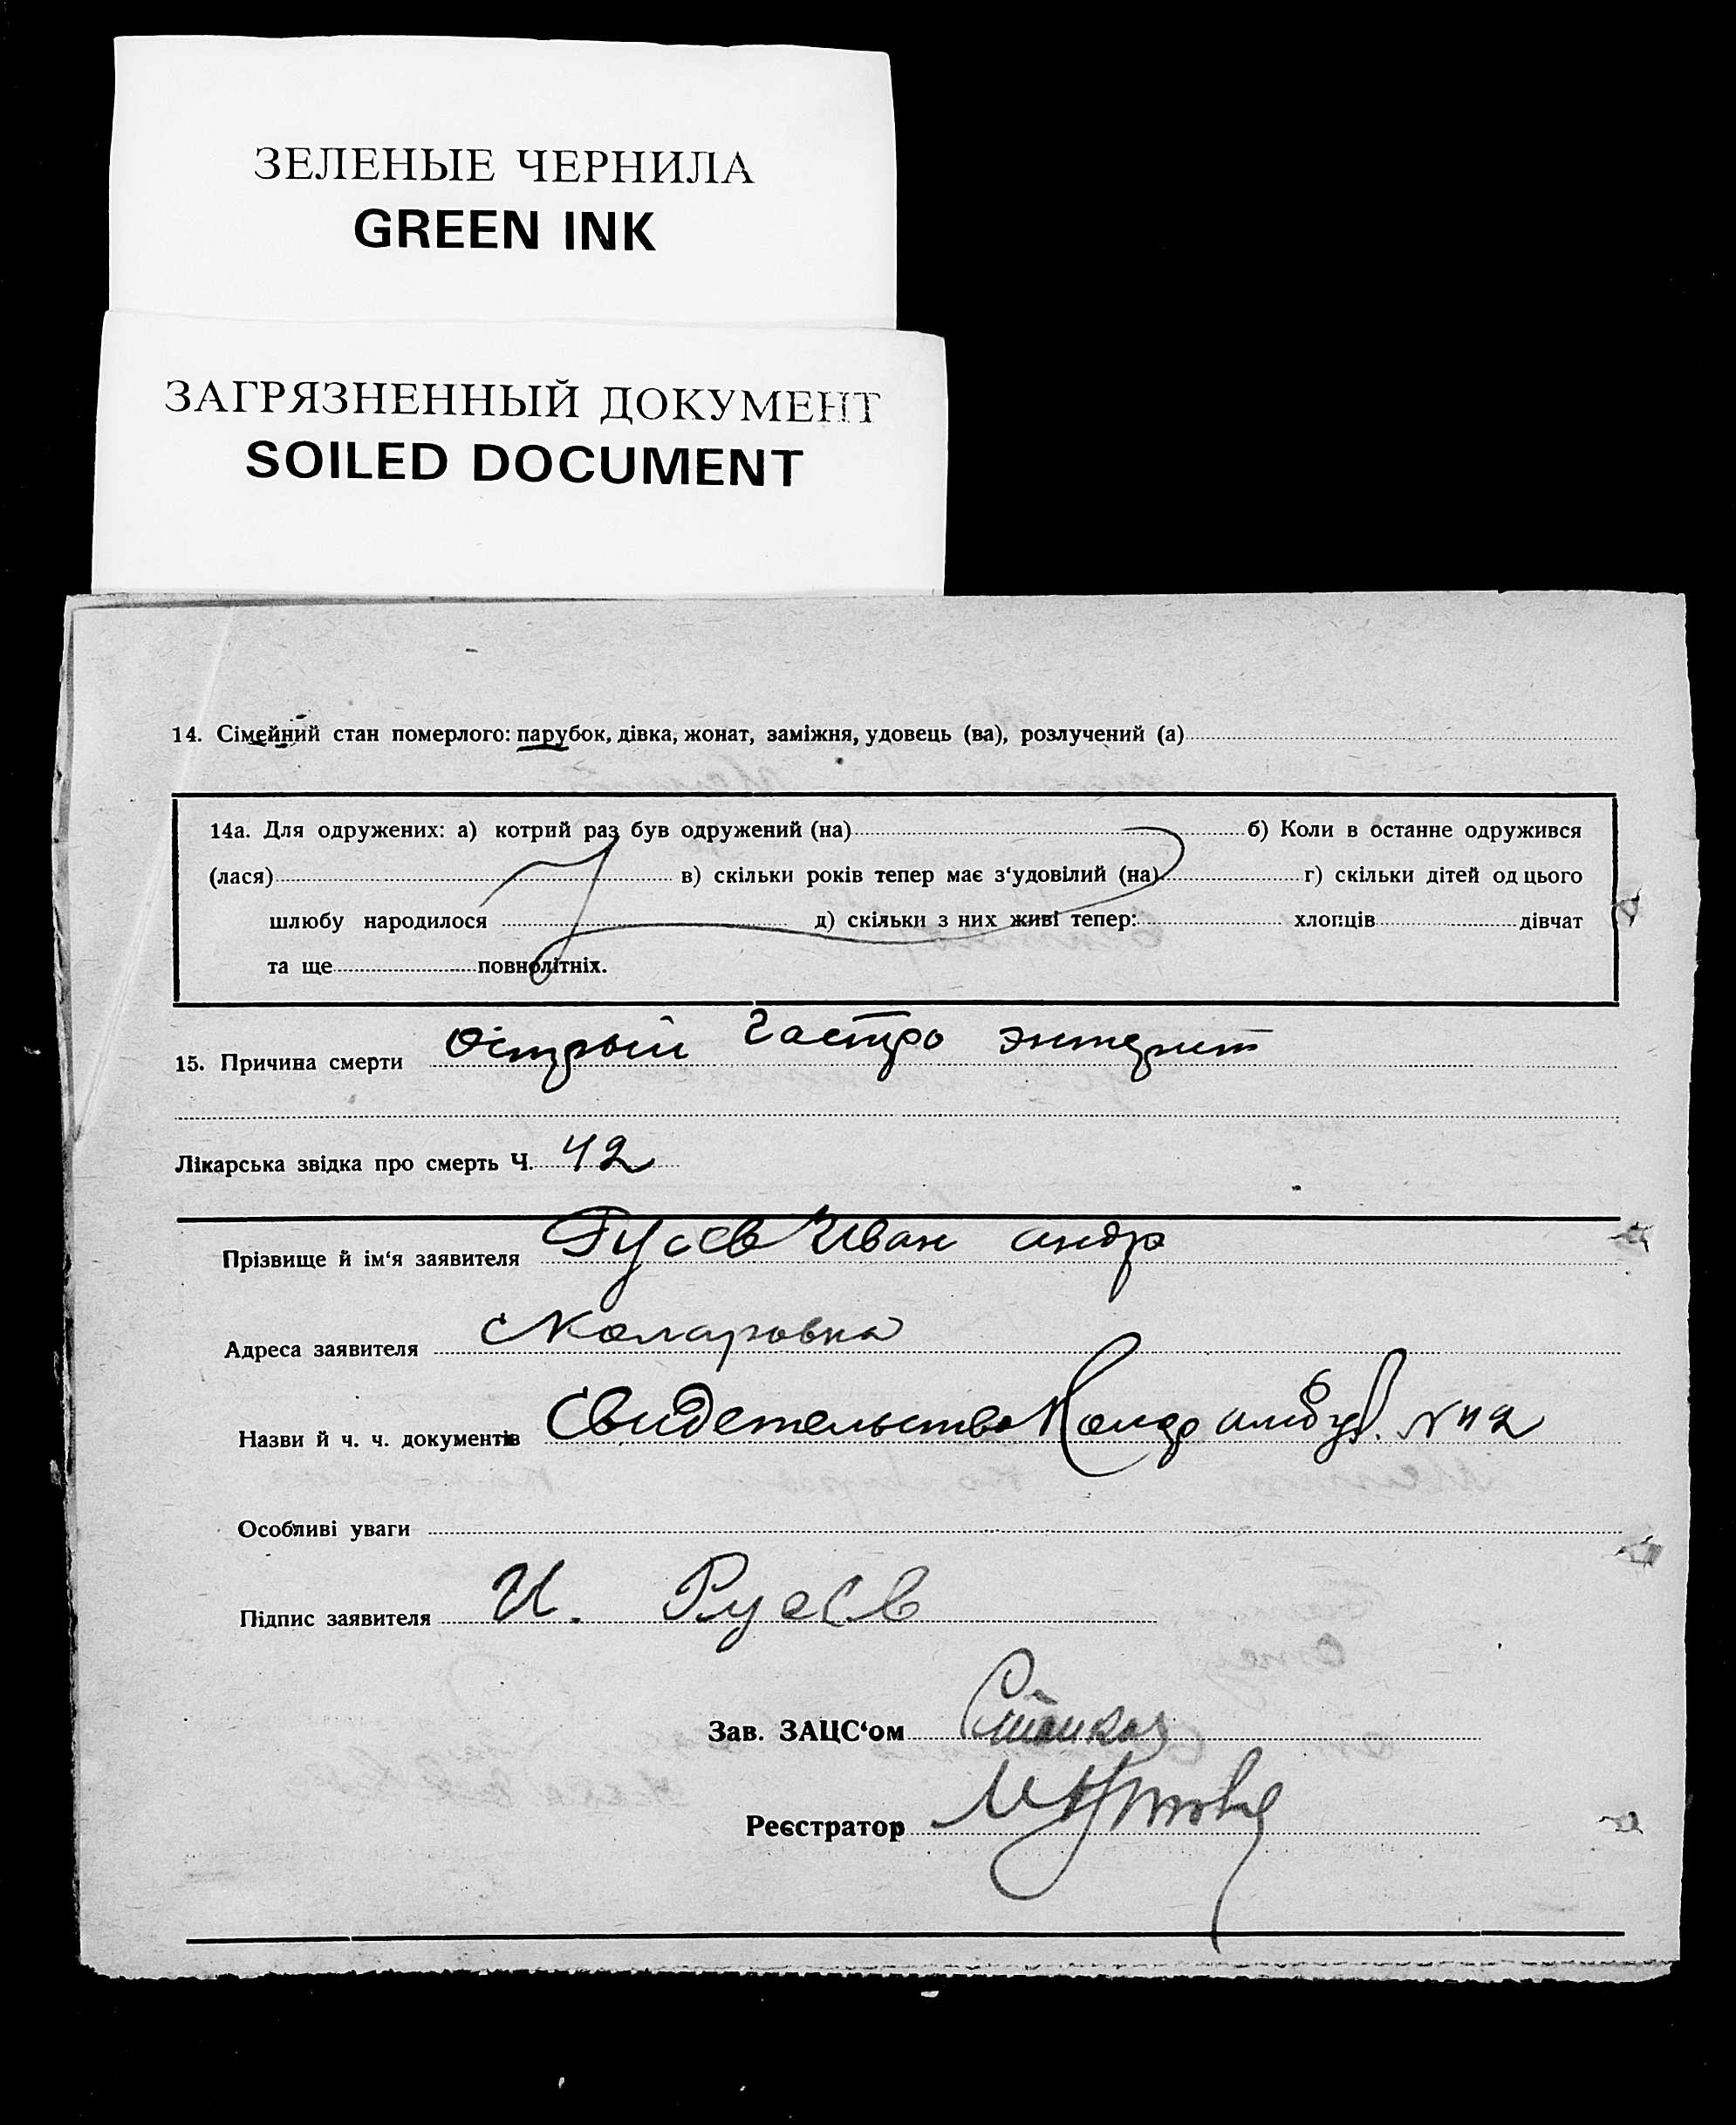 ЗЕЛЕНЫЕ ЧЕРНИЛА
GREEN INK
ЗАГРЯЗНЕННЫЙ ДОКУМЕНТ
SOILED DOCUMENT
14. Сімейний стан померлого: парубок, дівка, жонат, заміжня, удовець (ва), розлучений (а)
14а. Для одружених: а) котрий раз був одружений (на) б) Коли в останне одружився
(лася) в) скільки років тепер має з‘удовілий (на) г) скільки дітей од цього
шлюбу народилося д) скільки з них живі тепер: хлопців дівчат
та ще повнолітніх.
15. Причина смерти Острый гастро энтерит
Лікарська звідка про смерть Ч. 42
Прізвище й ім‘я заявителя Русев Иван андр
Адреса заявителя с Коларовка
Назви й ч. ч. документів Свидетельство амбул. N 42
Особливі уваги
Підпис заявителя И. Русев
Зав. ЗАЦС‘ом
Реєстратор